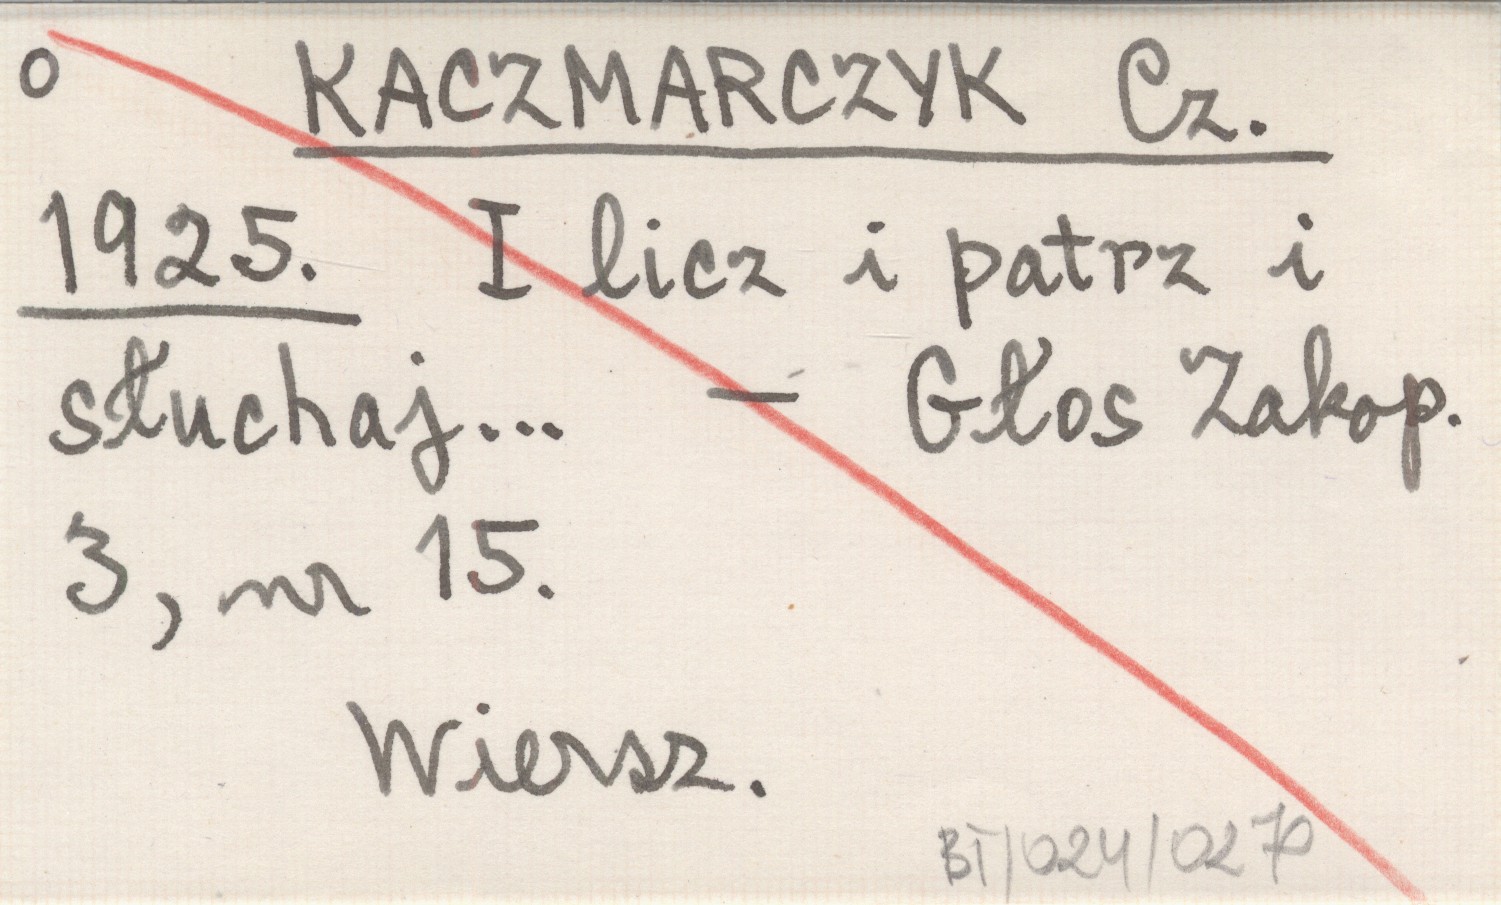 o KACZMARCZYK Cz.
1925. I licz i patrz i
słuchaj... — Głos Zakop.
3, nr 15.
Wiersz.
BT/024/0270